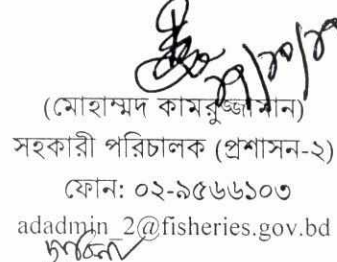 (মোহাম্মদ কামরুজ্জামান)
সহকারী পরিচালক (প্রশাসন-২)
ফোন: ০২-৯৫৬৬১০৩
adadmin_2@fisheries.gov.bd